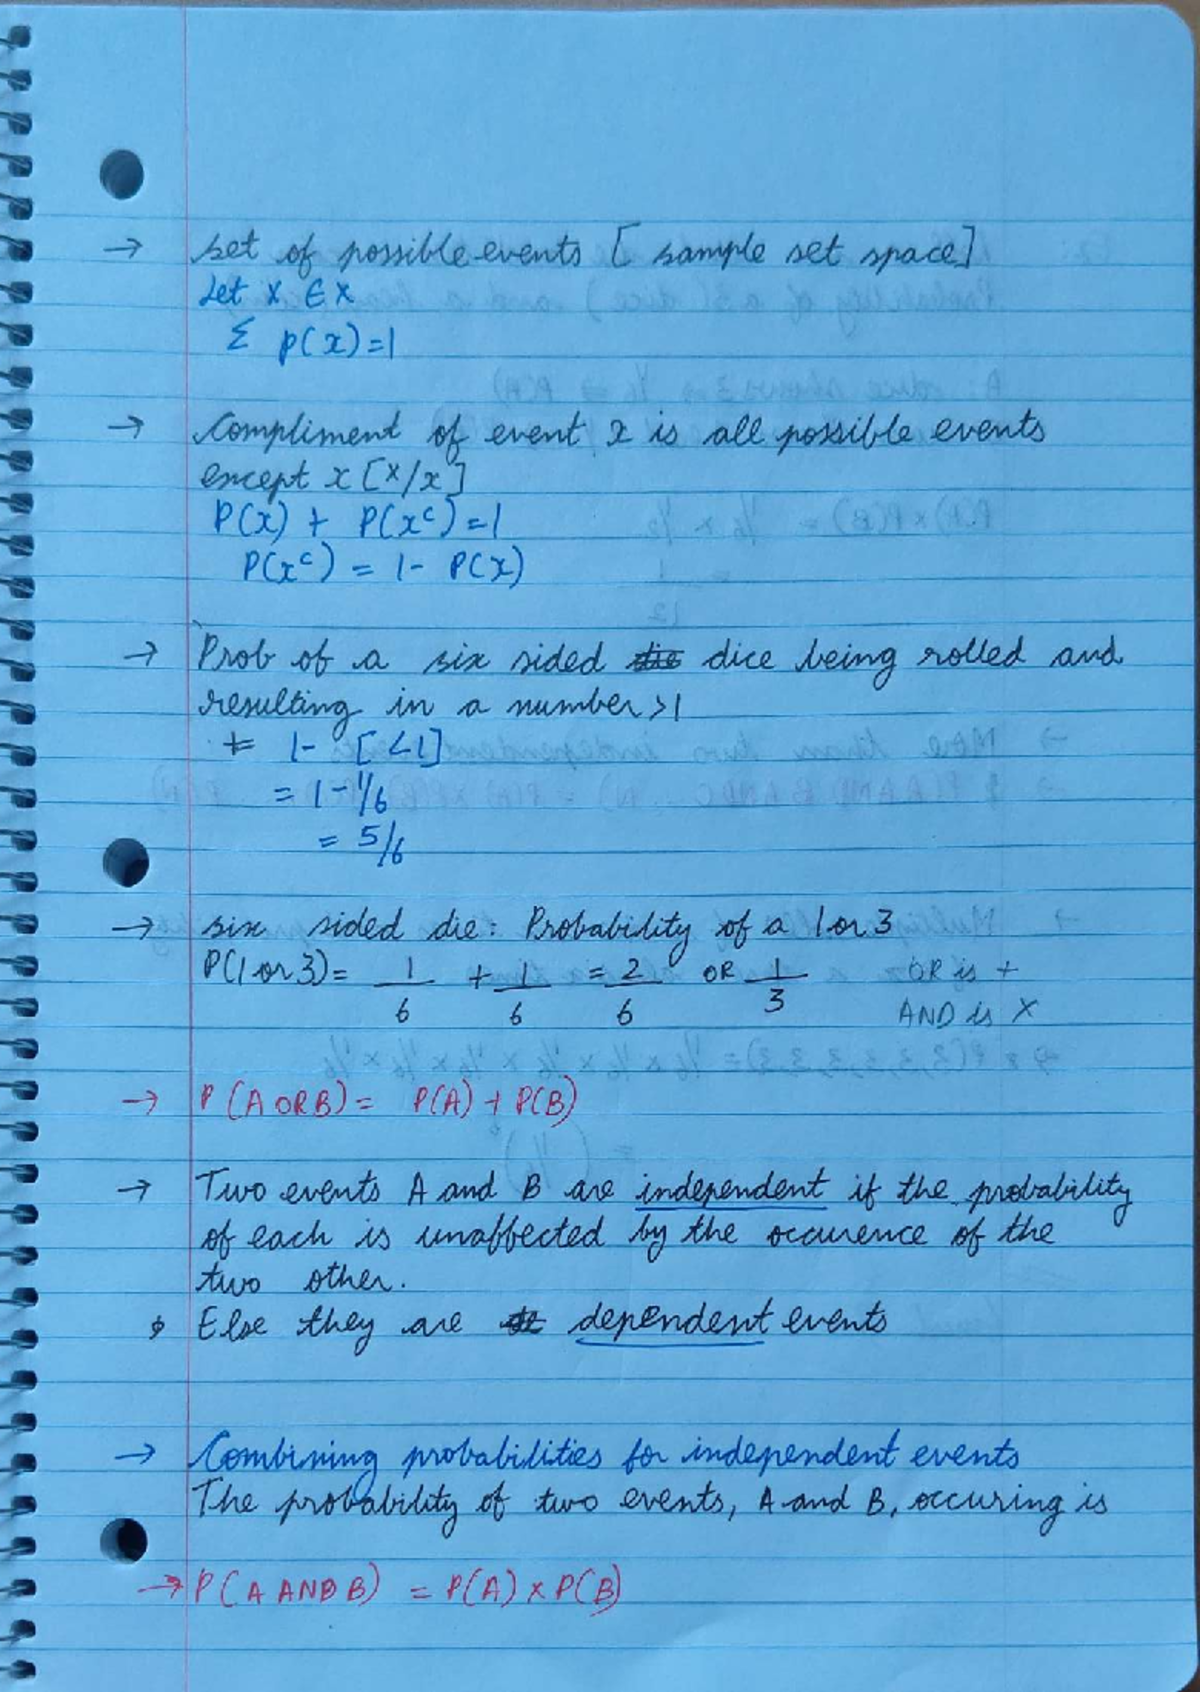 → set of possible events [ sample set space]
Let x ∈ X
Σ P(x)=1
→ Compliment of event x is all possible events
except x [X/x]
P(x) + P(xᶜ)=1
P(xᶜ) = 1- P(x)
→ Prob of a six sided die dice being rolled and
resulting in a number >1
= 1- [<1]
= 1-1/6
= 5/6
→ six sided die: Probability of a 1 or 3
P(1 or 3)= 1/6 + 1/6 = 2/6 OR 1/3 OR is +
AND is ×
→ P(A OR B)= P(A) + P(B)
→ Two events A and B are independent if the probability
of each is unaffected by the occurence of the
two other.
Else they are dependent events
→ Combining probabilities for independent events
The probability of two events, A and B, occuring is
→ P(A AND B) = P(A) × P(B)